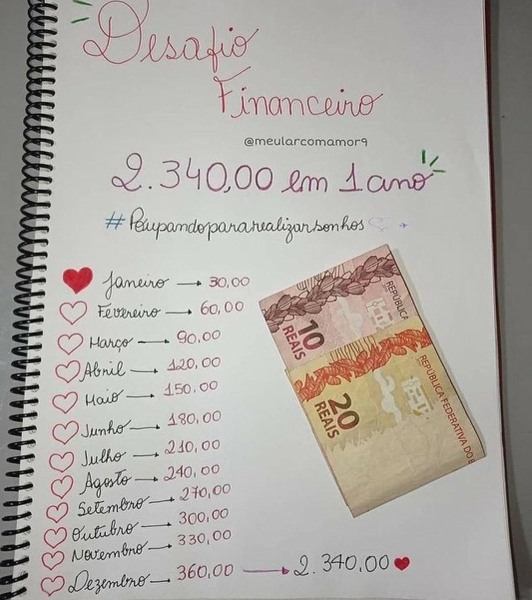 Desafio
Financeiro
@meularcomamor9
2.340,00 em 1 ano
#Poupandopararealizarsonhos
Janeiro → 30,00
Fevereiro → 60,00
Março → 90,00
Abril → 120,00
Maio → 150.00
Junho → 180,00
Julho → 210,00
Agosto → 240,00
Setembro → 270,00
Outubro → 300,00
Novembro → 330,00
Dezembro → 360,00 → 2.340.00
REPÚBLICA
10
REAIS
20
REAIS
REPÚBLICA FEDERATIVA DO B